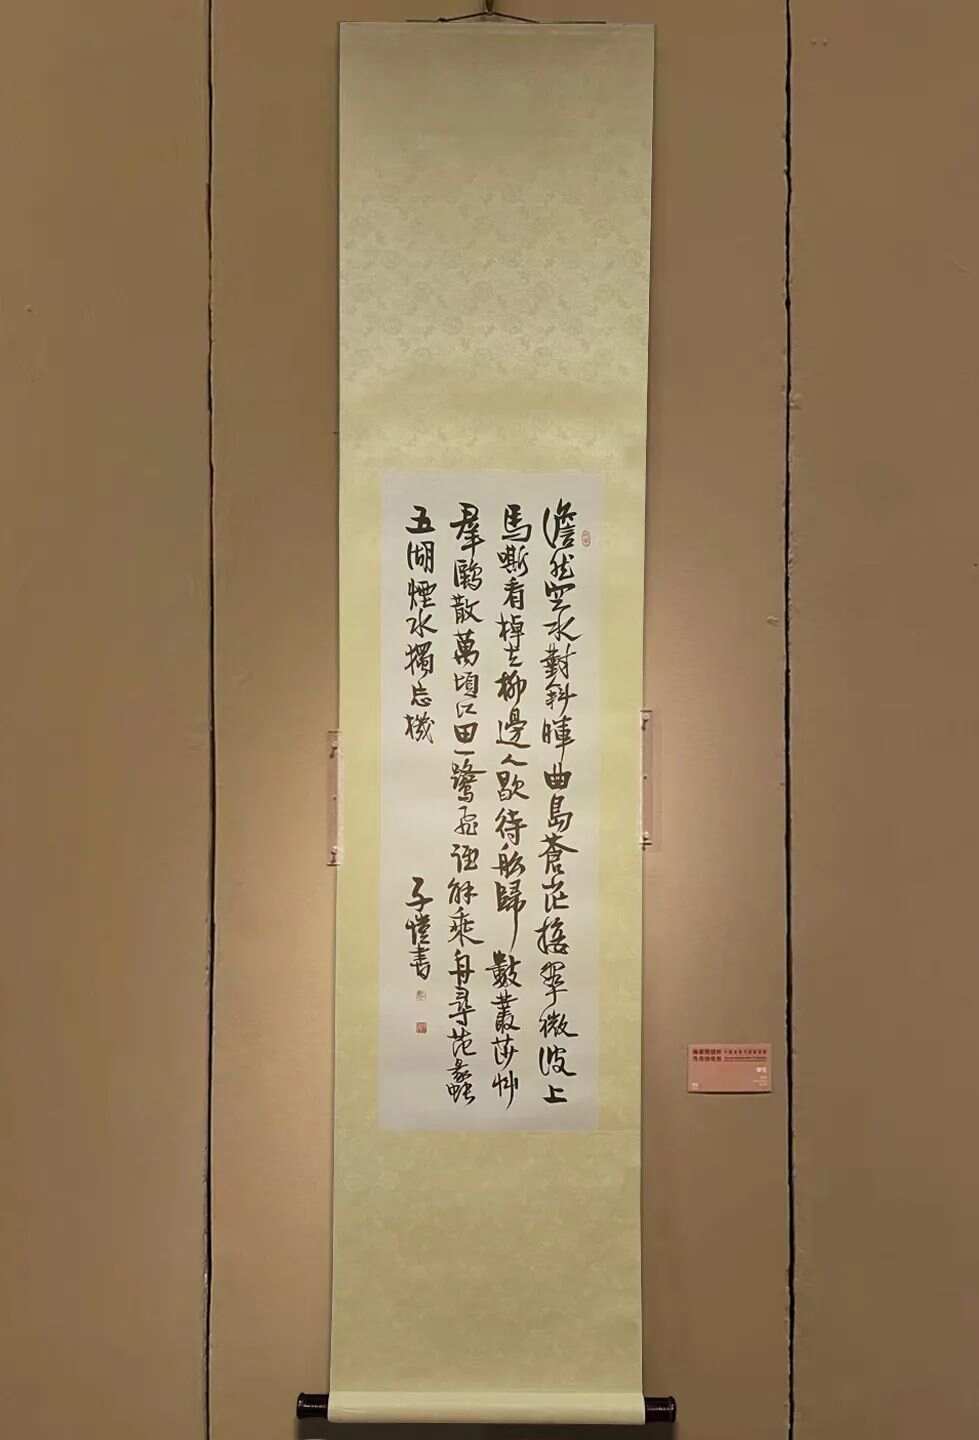 澹然空水對斜暉曲島蒼茫接翠微波上
馬嘶看棹去柳邊人歇待舩歸數叢莎艸
羣鷗散萬頃江田一鷺飛誰解乘舟尋范蠡
五湖煙水獨忘機
子愷書